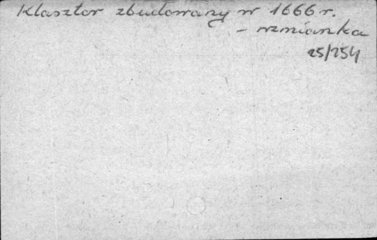 Klasztor zbudowany w 1666 r.
- wzmianka
25/254